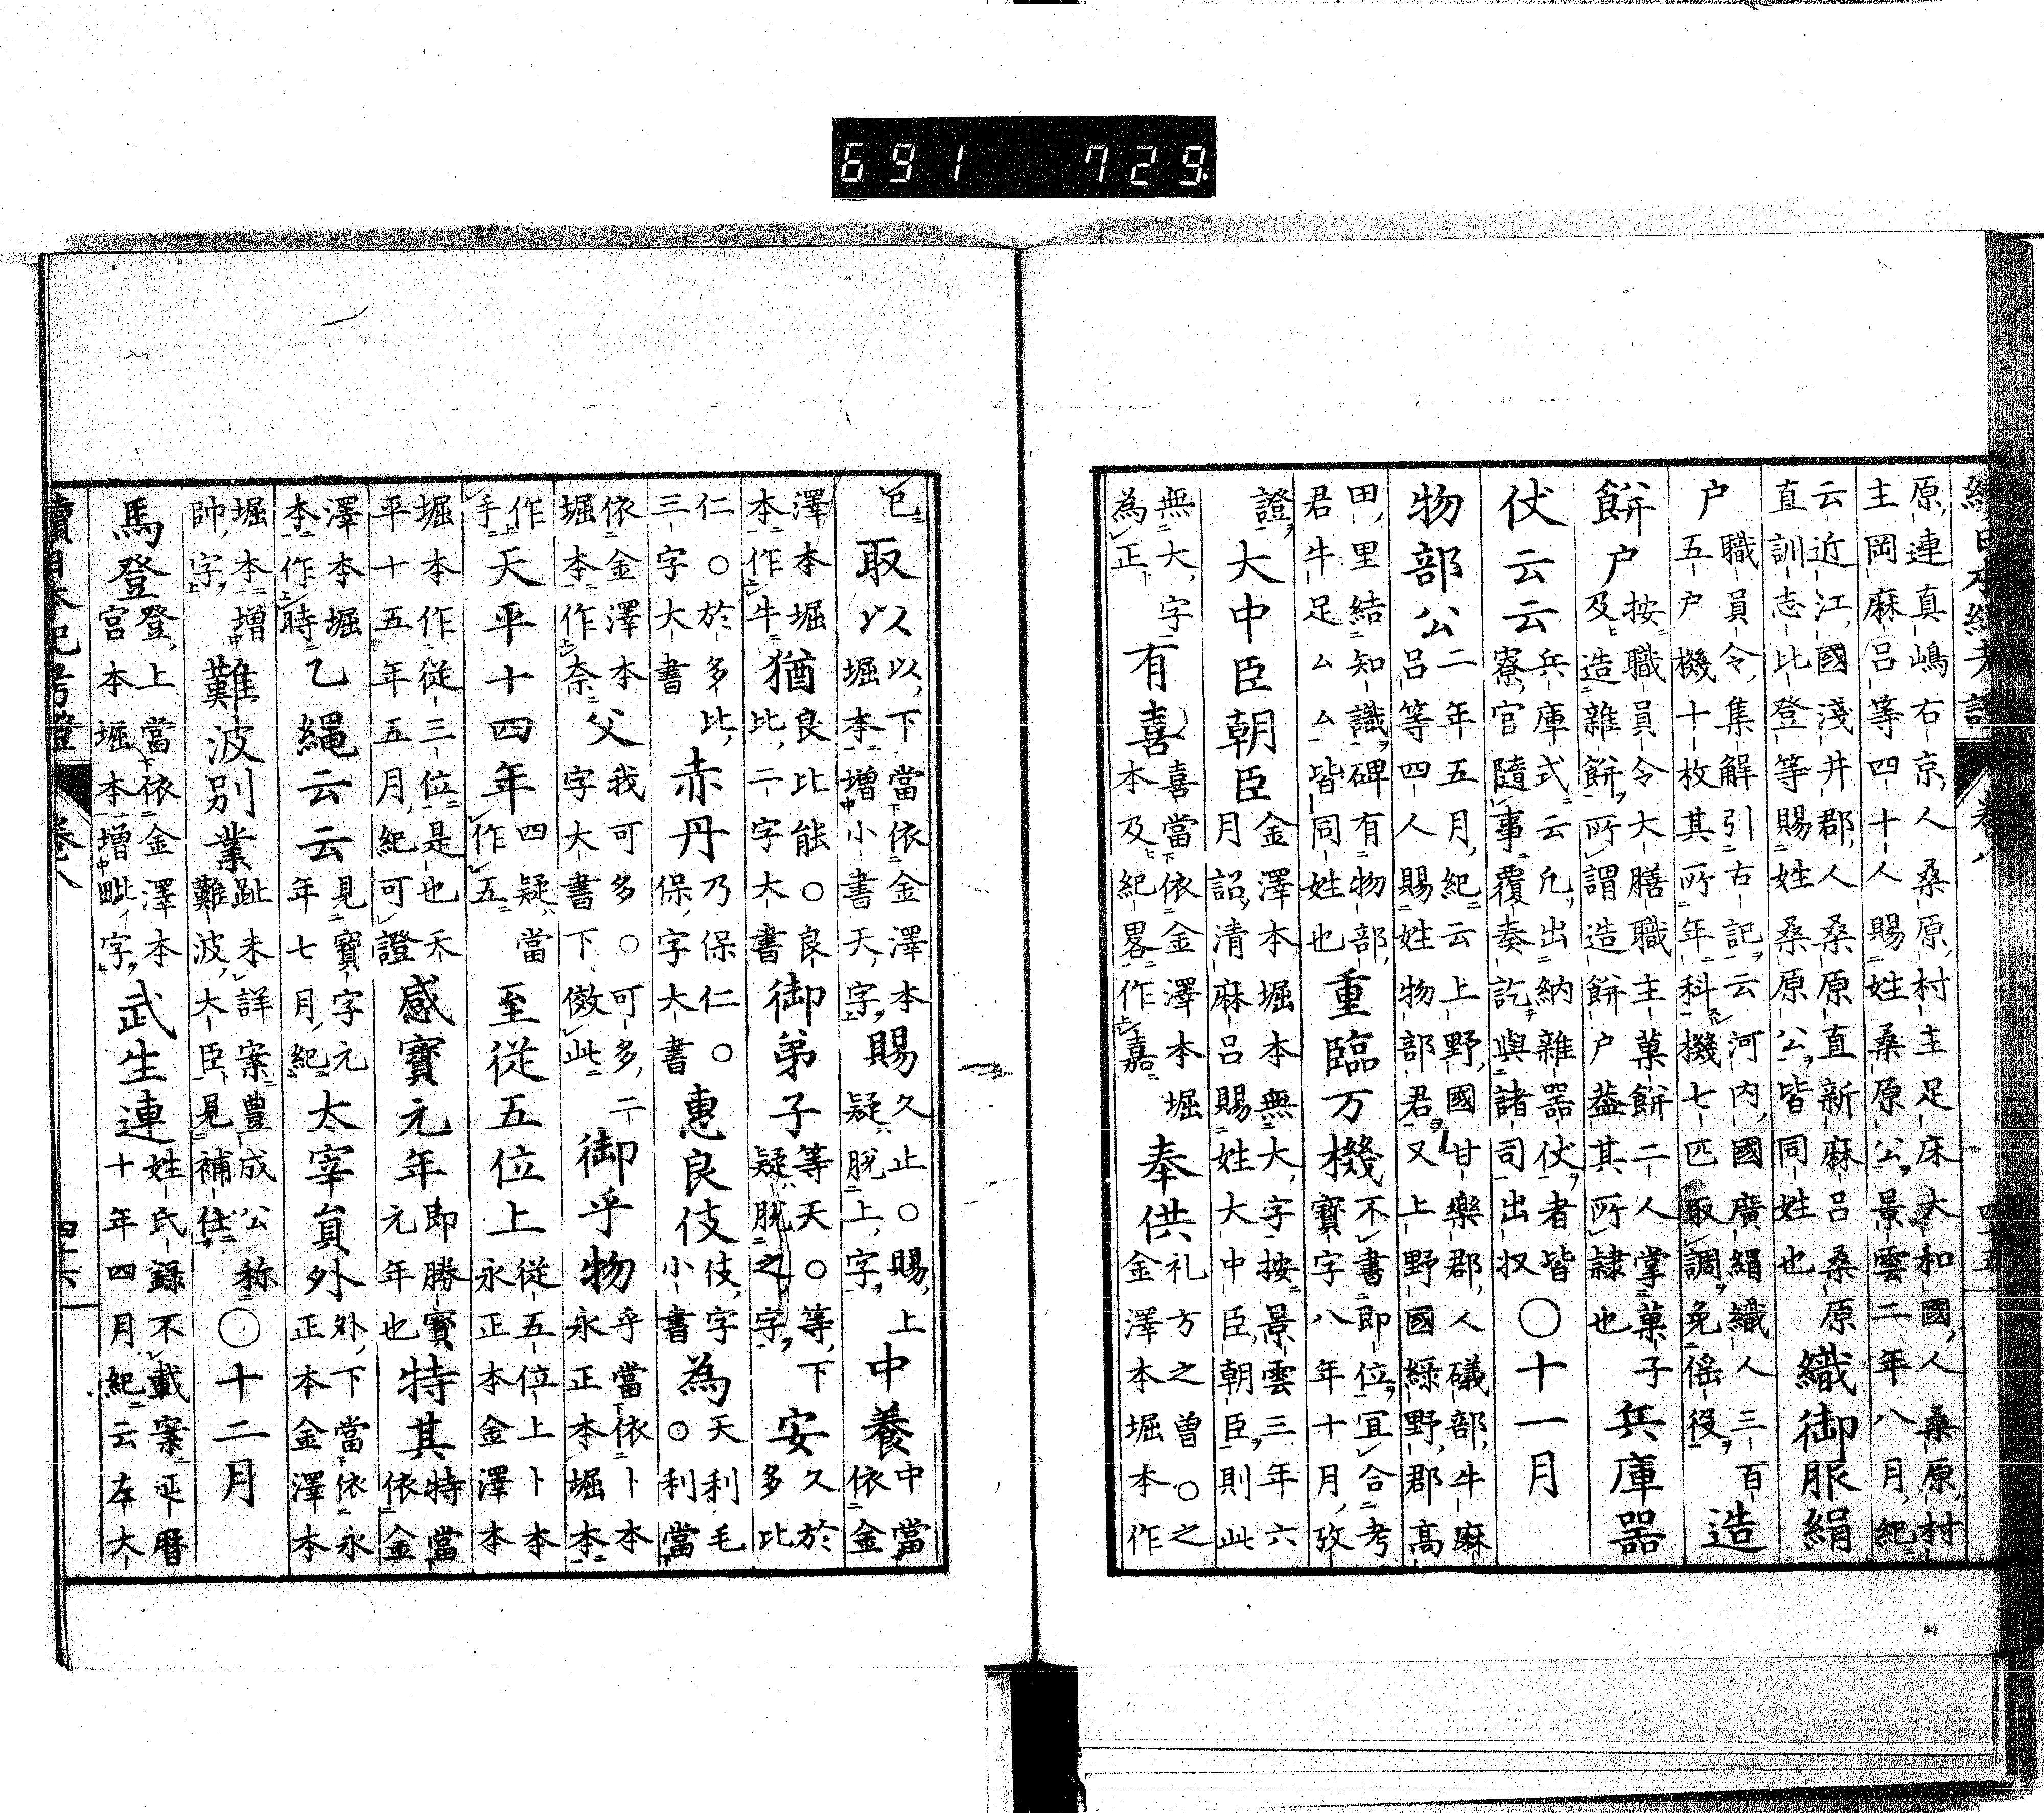 691 729
續日本紀考證 卷八 四十五
原連真嶋右京人桑原村主足床大和國人桑原村
主岡麻呂等四十人賜姓桑原公景雲二年八月紀
云近江國淺井郡人桑原直新麻呂桑原
直訓志比登等賜姓桑原公皆同姓也
織御服絹
戶
職員令集解引古記云河内國廣絹織人三百
五戶機十枚其所年科機七匹取調免徭役
造
餅戶
按職員令大膳職主菓餅二人掌菓子
及造雜餅所謂造餅戶蓋其所隷也
兵庫器
仗云云
兵庫式云凡出納雜器仗者皆
寮官隨事覆奏訖與諸司出收
○十一月
物部公
二年五月紀云上野國甘樂郡人礒部牛麻
呂等四人賜姓物部君又上野國綠野郡高
田里結知識碑有物部
君牛足ムム皆同姓也
重臨万機
不書即位冝合考
寶字八年十月攷
證
大中臣朝臣
金澤本堀本無大字按景雲三年六
月詔清麻呂賜姓大中臣朝臣則此
無大字
為正
有喜
喜當依金澤本堀
本及紀畧作嘉
奉供
礼方之曽○之
金澤本堀本作
巳
取以
以下當依金澤本
堀本増小書天字
賜
久止○賜上
疑脫上字
中養
中當
依金
澤本堀
本作牛
猶
良比能○良
比二字大書
御弟子
等天○等下
疑脫之字
安
久於
多比
仁○於多比
三字大書
赤丹
乃保仁○
保字大書
惠良伎
伎字
小書
為
天利毛
○利當
依金澤本
堀本作奈
父
我可多○可多二
字大書下倣此
御乎物
乎當依卜本
永正本堀本
作
手
天平十四年
四疑當
作五
至從五位上
從五位上卜本
永正本金澤本
堀本作從三位是也天
平十五年五月紀可證
感寶元年
即勝寶
元年也
特其
特當
依金
澤本堀
本作時
乙縄云云
見寶字元
年七月紀
太宰員外
外下當依永
正本金澤本
堀本増
帥字
難波別業
趾未詳案豊成公称
難波大臣見補任
○十二月
馬登
登上當依金澤本
宮本堀本増毗字
武生連
姓氏録不載案延暦
十年四月紀云左大
續日本紀考證 卷八 四十六